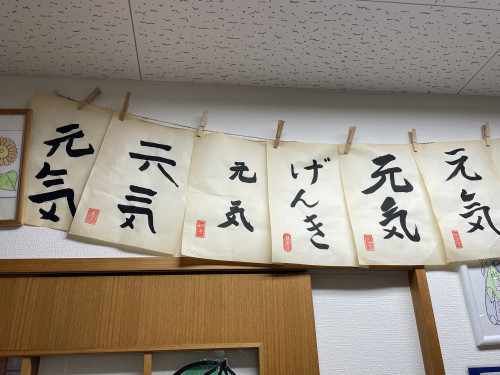 元気
元気
元気
げんき
元気
元気